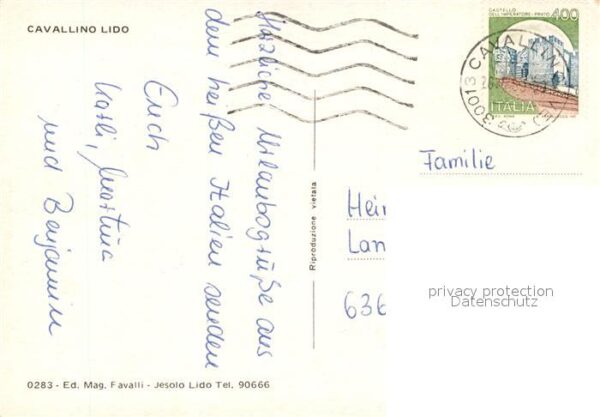 CAVALLINO LIDO
Herzliche Urlaubsgrüße aus
dem heißen Italien senden
Euch
und Benjamin
Riproduzione vietata
0283 - Ed. Mag. Favalli - Jesolo Lido Tel. 90666
CASTELLO
DELL'IMPERATORE - PRATO
400
ITALIA
30013 CAVALLINO
Familie
Hei
Lan
636
privacy protection
Datenschutz